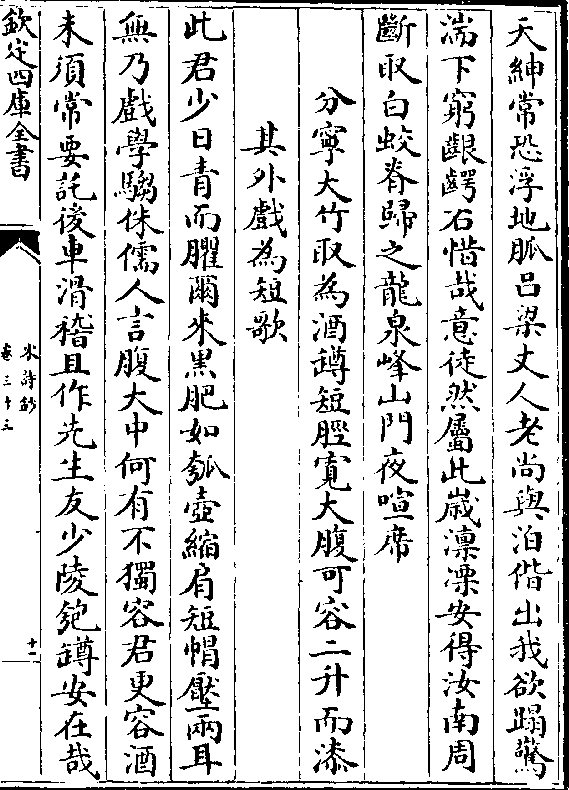 天紳常恐浮地脈吕梁丈人老尚與泊偕出我欲蹋驚
湍下窮齦齶石惜哉意徒然屬此嵗凛凓安得汝南周
斷取白蛟脊歸之龍泉峰山門夜喧席
分寧大竹取為酒罇短脛寛大腹可容二升而漆
其外戲為短歌
此君少日青而臞爾来黒肥如瓠壺縮肩短帽壓兩耳
無乃戲學騶侏儒人言腹大中何有不獨容君更容酒
未須常要託後車滑稽且作先生友少陵匏罇安在哉
欽定四庫全書
宋詩鈔
卷三十三
十二